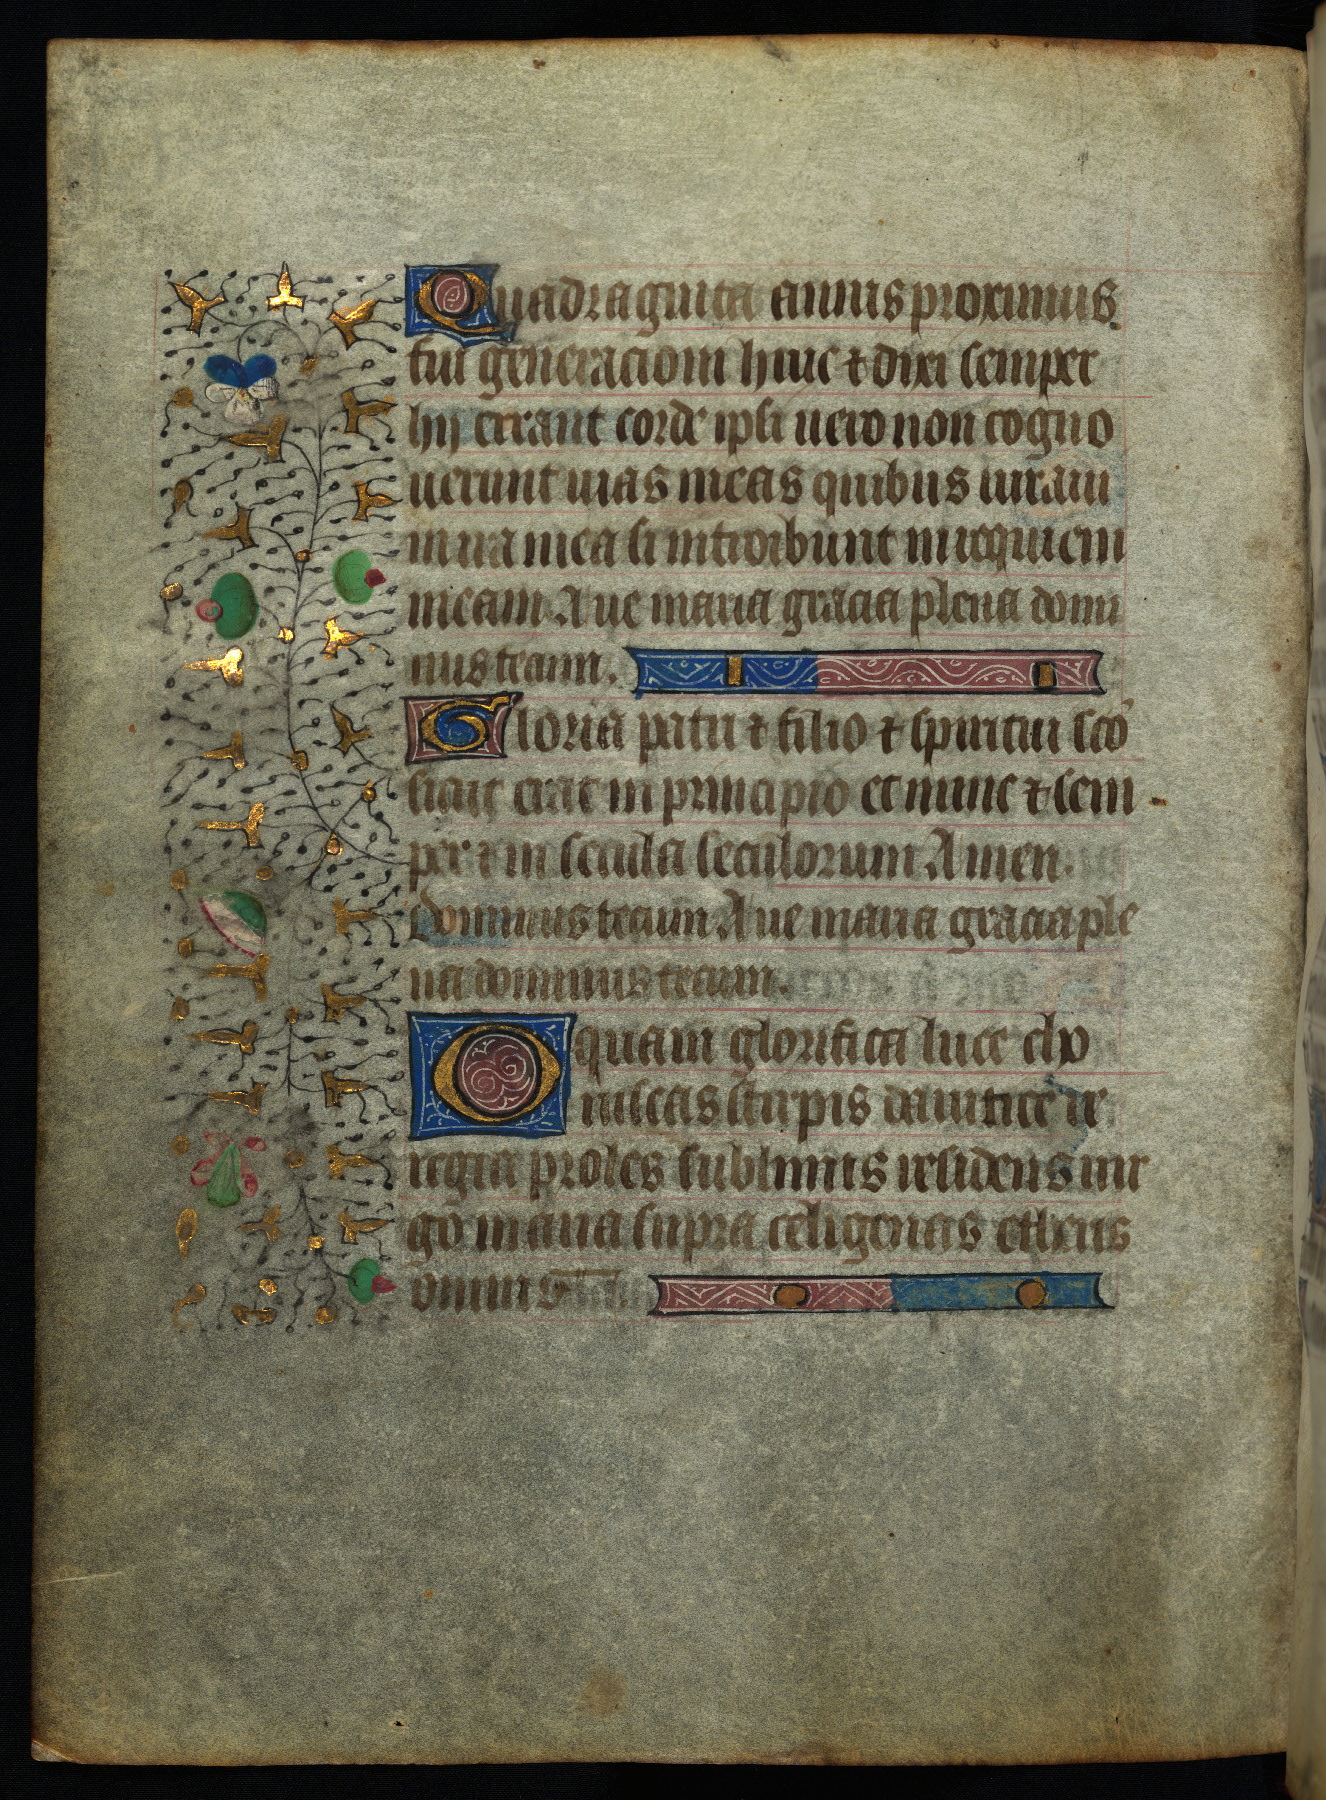 Quadraginta annis proximus
fui generacioni huic ⁊ dixi semper
hij errant corde ipsi uero non cogno
uerunt uias meas quibus iuraui
in ira mea si introibunt in requiem
meam. Aue maria gracia plena domi
nus tecum.
Gloria patri ⁊ filio ⁊ spiritui sco̅
sicut erat in principio et nunc ⁊ sem
per ⁊ in secula seculorum Amen.
Dominus tecum. Aue maria gracia ple
na dominus tecum.
O quam glorifica luce cho
ruscas stirpis dauitice
regia proles sublimis residens uir
go maria supra celigenas etheris
omnis